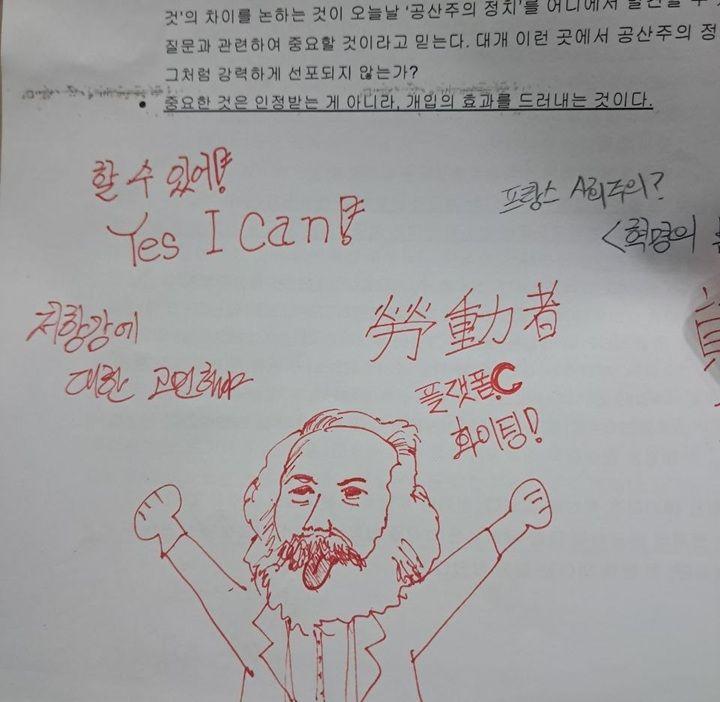 것'의 차이를 논하는 것이 오늘날 '공산주의 정치'를 어디에서
질문과 관련하여 중요할 것이라고 믿는다. 대개 이런 곳에서 공산주의 정
그처럼 강력하게 선포되지 않는가?
• 중요한 것은 인정받는 게 아니라, 개입의 효과를 드러내는 것이다.
할 수 있어!
프랑스 사회주의?
Yes I Can!
<혁명의
저항감에
勞動者
대한 고민해야
플랫폼C
화이팅!